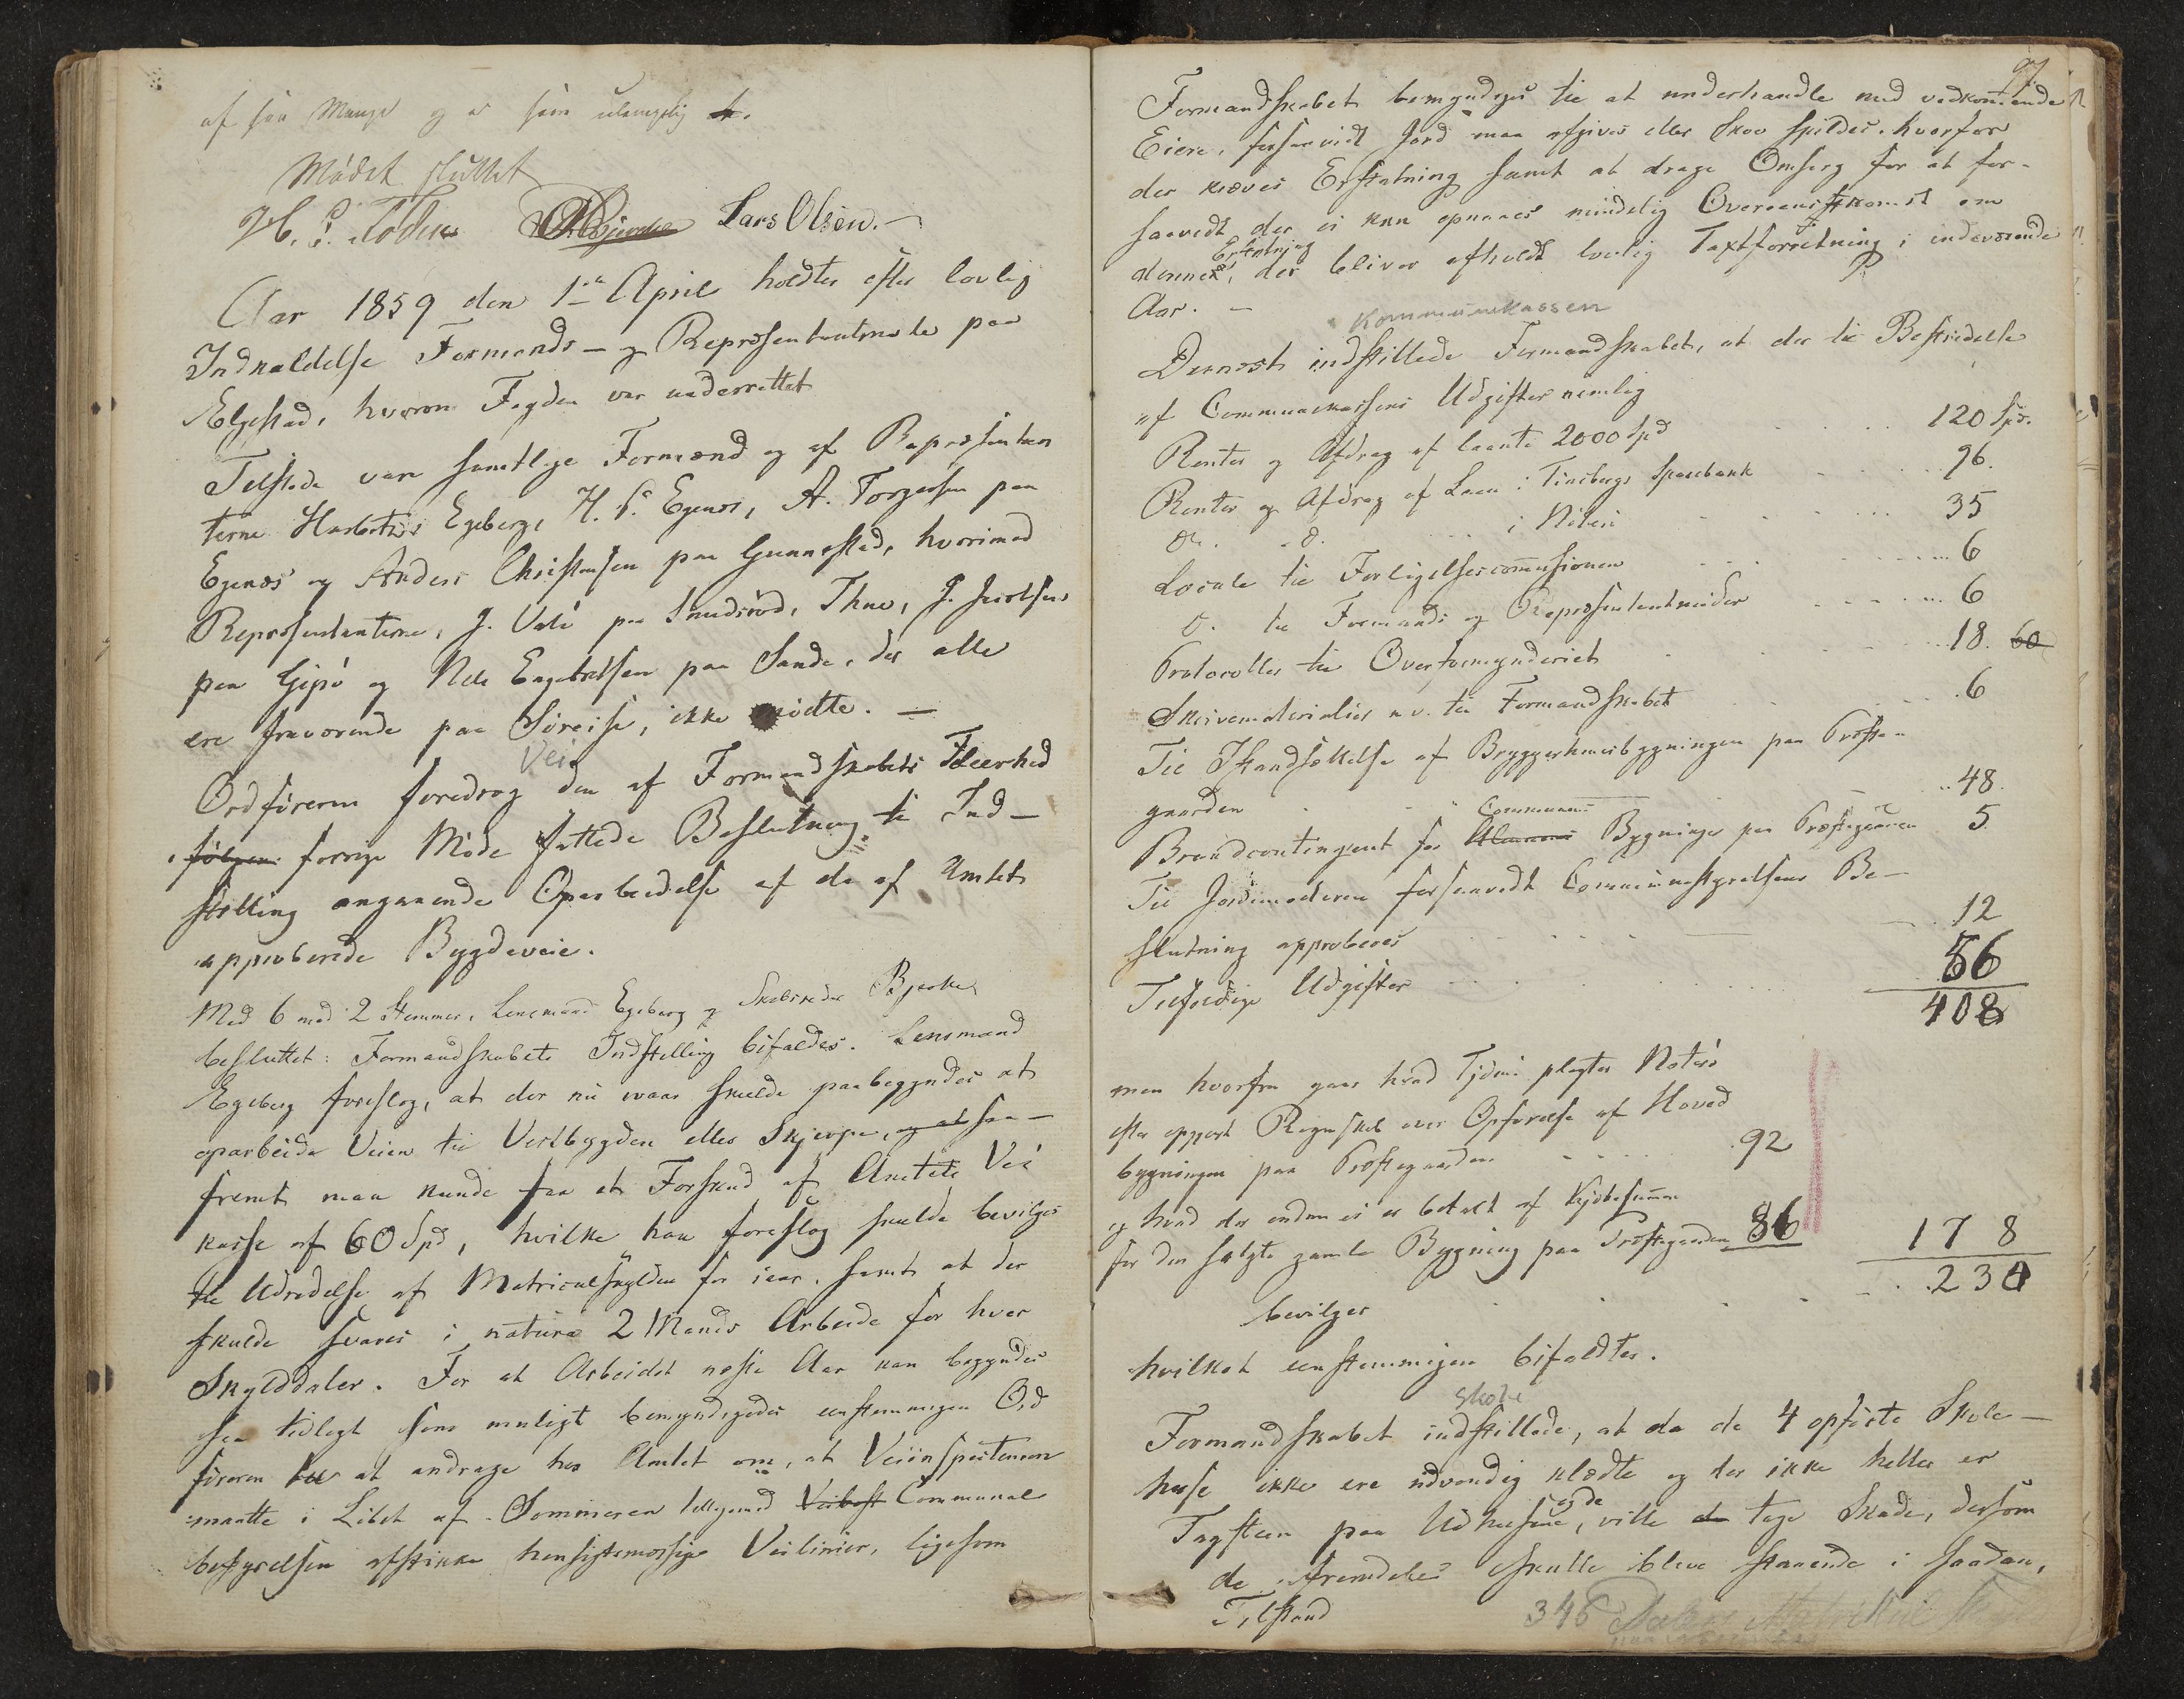 af saa Mange og er som ulempelig
Mødet sluttet
Lars Olsen.
Aar 1859 den 1ste April holdtes efter lovlig
Indkaldelse Formands- og Repræsentantmøde paa
Elgestad, hvorom Fogden var underrettet
Tilstede var samtlige Formænd og af Repræsentan
terne Egeberg, H. P. Egenæs, A. Torgersen paa
Egenæs og Anders Christensen paa Gunnestad, hvorimod
Repræsentanterne, J. paa Smidsrød, Thue, J. Jacobsen
paa Gipø og Nils Engebretsen paa Sande, der alle
ere fraværende paa Søreise, ikke mødte. —
Vei
Ordføreren foredrog den af Formandskabets Fleerhed
i følgen forrige Møde fattede Beslutning til Ind-
stilling angaaende Oparbeidelse af de af Amtet
approberede Bygdeveie.
Med 6 mod 2 Stemmer, Lensmand Egeberg og Skibsreder Bjerke
besluttet: Formandskabets Indstilling bifaldes. Lensmand
Egeberg foreslog, at der nu iaar skulde paabegyndes at
oparbeide Veien til Vestbygden eller Skjerpe, og at saa-
fremt man kunde faa et Forskud af Amtets Vei
kasse af 60 Spd, hvilke han foreslog skulde bevilges
til Udredelse af Matriculskylden for iaar, samt at der
skulde svares i natura 2 Mands Arbeide for hver
Skylddaler. For at Arbeidet næste Aar kan begyndes
saa tidligt som muligt bemyndigedes eenstemmigen Ord
føreren til at andrage hos Amtet om, at Veiinspecteuren
maatte i Løbet af Sommeren tilligemed Communal
bestyrelsen afstikke hensigtsmæssige Veilinier, ligesom
97.
Formandskabet bemyndiges til at underhandle med vedkommende
Eiere, forsaavidt Jord maa afgives eller Skov spildes, hvorfor
der kræves Erstatning samt at drage Omsorg for at for-
saavidt der ei kan opnaaes mindelig Overeenskomst om
Erstatning
dennes, der bliver afholdt lovlig Taxtforretning i indeværende
Aar. —
Kommunekassen
Dernæst indstillede Formandskabet, at der til Bestridelse
af Communekassens Udgifter nemlig
Renter og Afdrag af laante 2000 Spd 120 Spd.
Renter og Afdrag af Laan i Tønsbergs Sparebank 96.
Do. do. i Nøterø 35
Locale til Forligelsescommissionen 6
do. til Formands og Repræsentantmøder 6
Protocoller til Overformynderiet 18. 60
Skrivematerialier m.v. til Formandskabet 6
Til Istandsættelse af Bryggerhuusbygningen paa Præste-
gaarden 48.
Communens
Brandcontingent for Bygninger paa Præstegaarden 5.
Til Jordemoderen forsaavidt Communestyrelsens Be-
slutning approberes 12
Tilfældige Udgifter 56
408
men hvorfra gaar hvad Tjømø pligter Nøterø
efter opgjort Regnskab over Opførelse af Hoved
bygningen paa Præstegaarden 92
og hvad der endnu ei er betalt af Kjøbesummen
for den solgte gamle Bygning paa Præstegaarden 86 178
230
bevilges
hvilket eenstemmigen bifaldtes.
Skole
Formandskabet indstillede, at da de 4 opførte Skole-
huse ikke ere udvendig klædte og der ikke heller er
Tagsteen paa Udhusene, ville de tage Skade, dersom
de fremdeles skulle blive staaende i saadan,
Tilstand
346